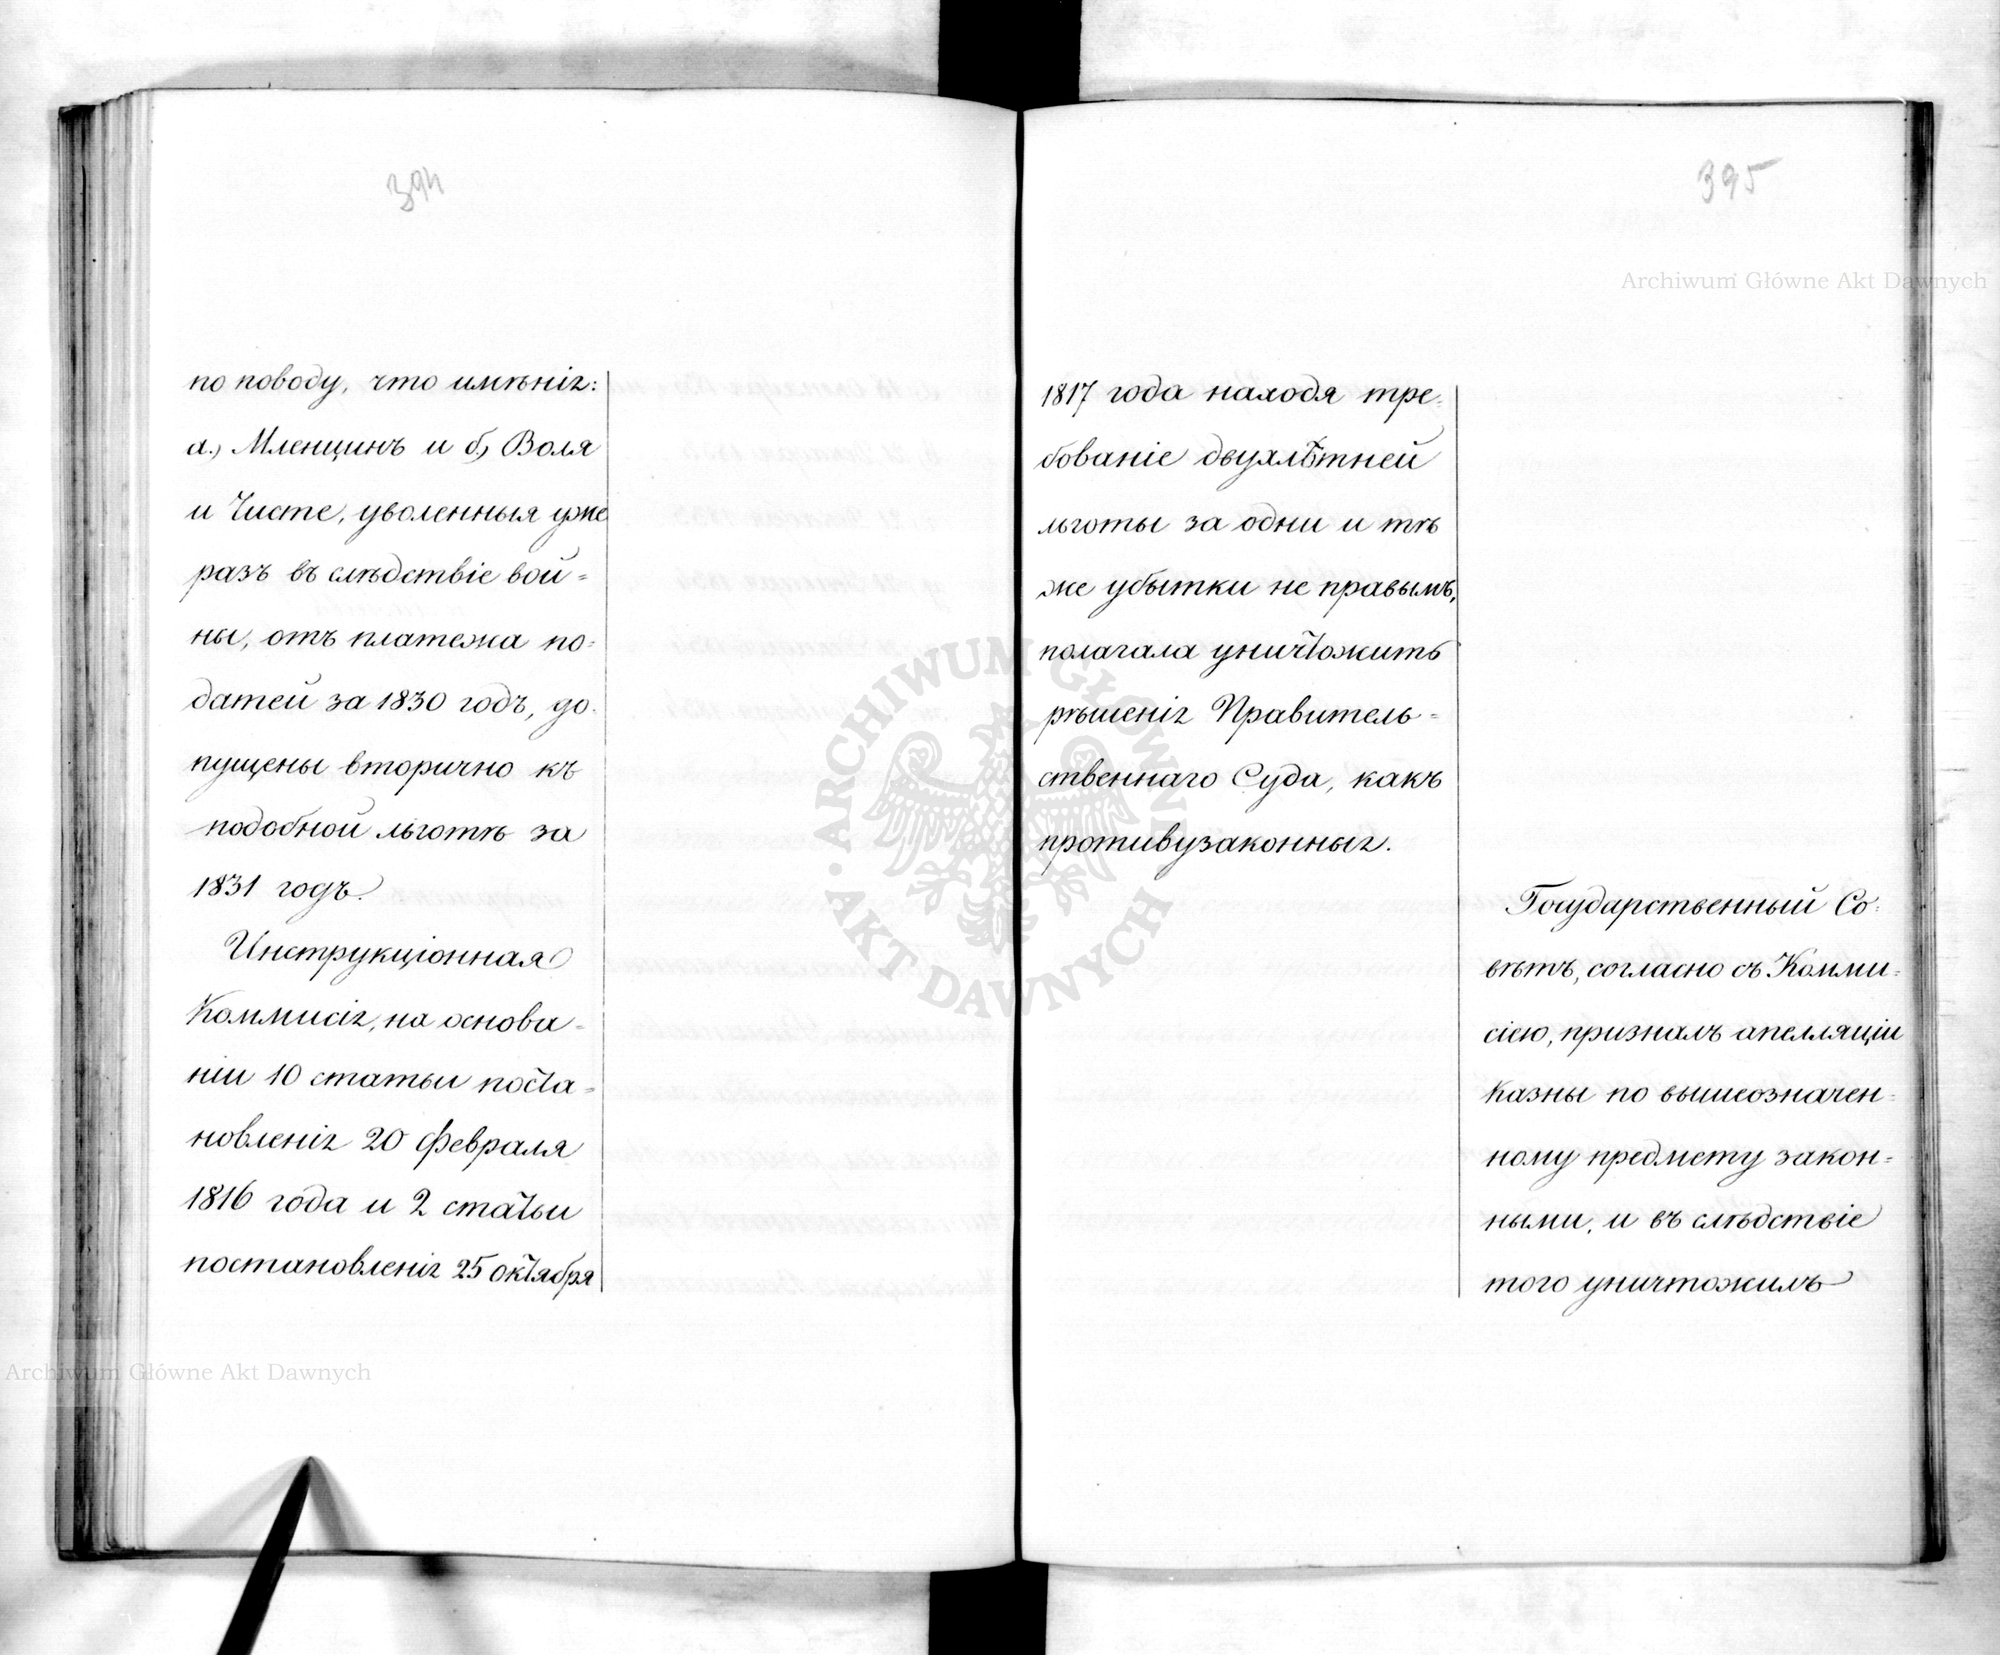 394
по поводу, что имѣнія:
а.) Мленцинъ и б.) Воля
и Чисте, уволенныя уже
разъ въ слѣдствіе вой=
ны, отъ платежа по=
датей за 1830 годъ, до=
пущены вторично къ
подобной льготѣ за
1831 годъ.
Инструкціонная
Коммисія, на основа=
ніи 10 статьи поста=
новленія 20 Февраля
1816 года и 2 статьи
постановленія 25 октября
395
1817 года находя тре=
бованіе двухлѣтней
льготы за одни и тѣ
же убытки не правымъ,
полагала уничтожить
рѣшенія Правитель=
ственнаго Суда, какъ
противузаконныя.
Государственный Со=
вѣтъ, согласно съ Комми=
сіею, призналъ апелляціи
Казны по вышеозначен=
ному предмету закон=
ными, и въ слѣдствіе
того уничтожилъ
Archiwum Główne Akt Dawnych
Archiwum Główne Akt Dawnych
ARCHIWUM GŁÓWNE AKT DAWNYCH